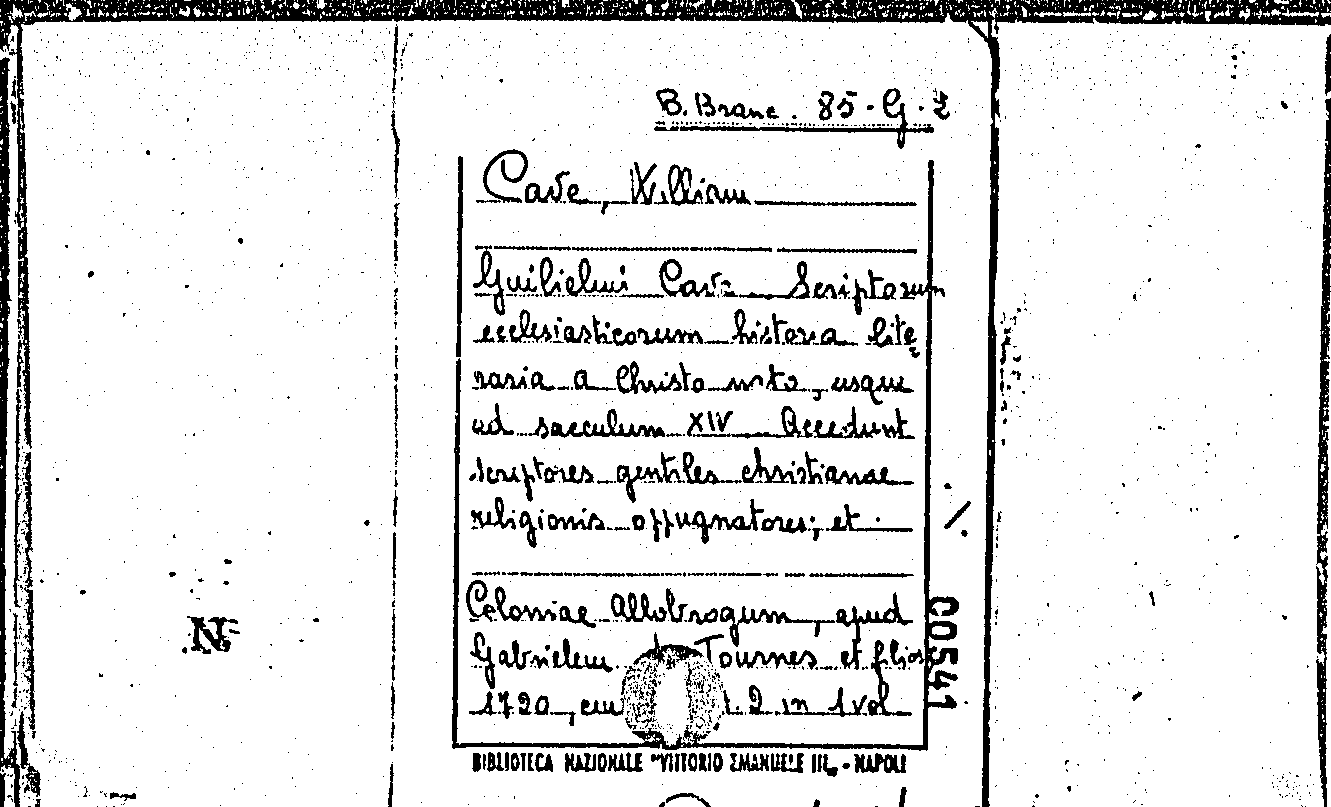 B. Branc. 85. G. 2
Cave, William
Guilielmi Cave Scriptorum
ecclesiasticorum historia lite
raria a Christo nato, usque
ad saeculum XIV Accedunt
scriptores gentiles christianae
religionis oppugnatores; et
Coloniae Allobrogum, apud
Gabrielem Tournes et filios
1720, 2 in 1 vol
00541
BIBLIOTECA NAZIONALE "VITTORIO EMANUELE III" - NAPOLI
N